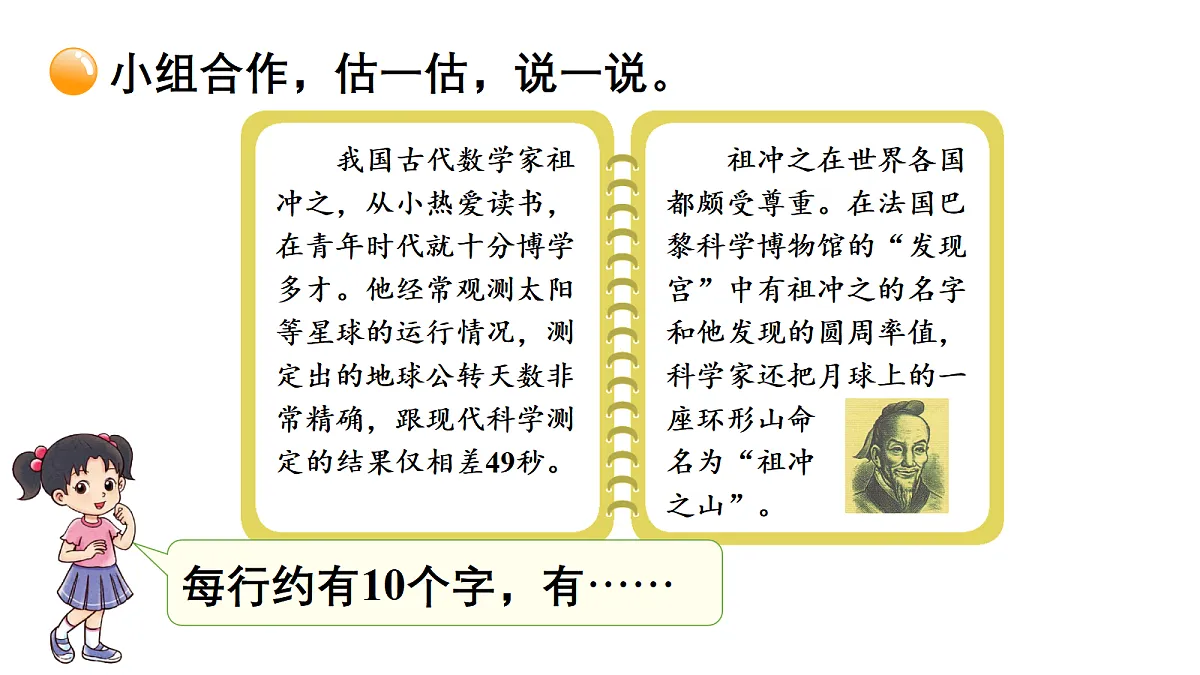 小组合作，估一估，说一说。
我国古代数学家祖
冲之，从小热爱读书，
在青年时代就十分博学
多才。他经常观测太阳
等星球的运行情况，测
定出的地球公转天数非
常精确，跟现代科学测
定的结果仅相差49秒。
祖冲之在世界各国
都颇受尊重。在法国巴
黎科学博物馆的“发现
宫”中有祖冲之的名字
和他发现的圆周率值，
科学家还把月球上的一
座环形山命
名为“祖冲
之山”。
每行约有10个字，有……